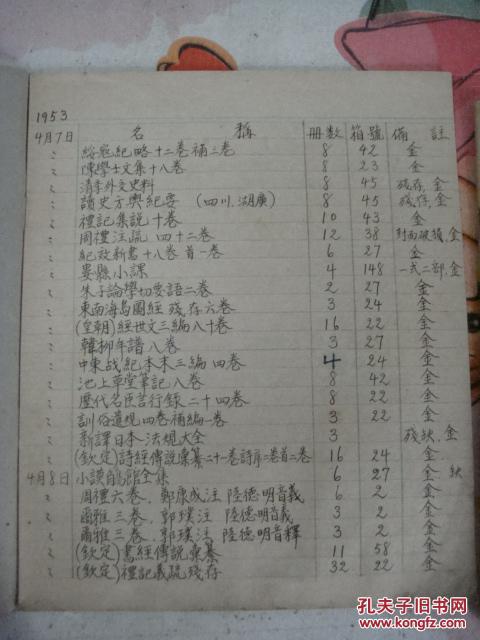 1953
4月7日 名 稱 册数 箱號 備 註
〃 綏寇紀略十二卷補三卷 8 42 金
〃 陳學士文集十八卷 8 23 金
〃 清季外交史料 8 45 殘存,金
〃 讀史方輿紀要 (四川.湖廣) 8 45 殘存,金
〃 禮記集説十卷 10 43 金
〃 周禮注疏 四十二卷 12 38 封面破殘,金
〃 紀效新書十八卷 首一卷 6 27 金
〃 婁縣小課 4 148 一式二部,金
〃 朱子論學切要語二卷 2 27 金
〃 東南海島圖經 殘存六卷 3 24 金
〃 (皇朝)經世文三編八十卷 16 22 金
〃 韓柳年譜八卷 3 27 金
〃 中東战紀本末三編 四卷 4 24 金
〃 池上草堂筆記八卷 8 42 金
〃 歷代名臣言行錄二十四卷 8 22 金
〃 訓俗遺規四卷補編一卷 3 22 金
〃 新譯日本法規大全 3 殘缺.金
〃 (欽定)詩經傳説彙纂二十一卷詩序二卷首二卷 16 24 金
4月8日 小謨觴館全集 6 27 金 缺
〃 周禮六卷.鄭康成注 陸德明音義 6 2 金
〃 爾雅三卷.郭璞注 陸德明音義 3 2 金
〃 爾雅三卷.郭璞注 陸德明音釋 3 2 金
〃 (欽定)書經傳説彙纂 11 58 金
〃 (欽定)禮記義疏殘存 32 22 金
孔夫子旧书网
www.kongfz.com